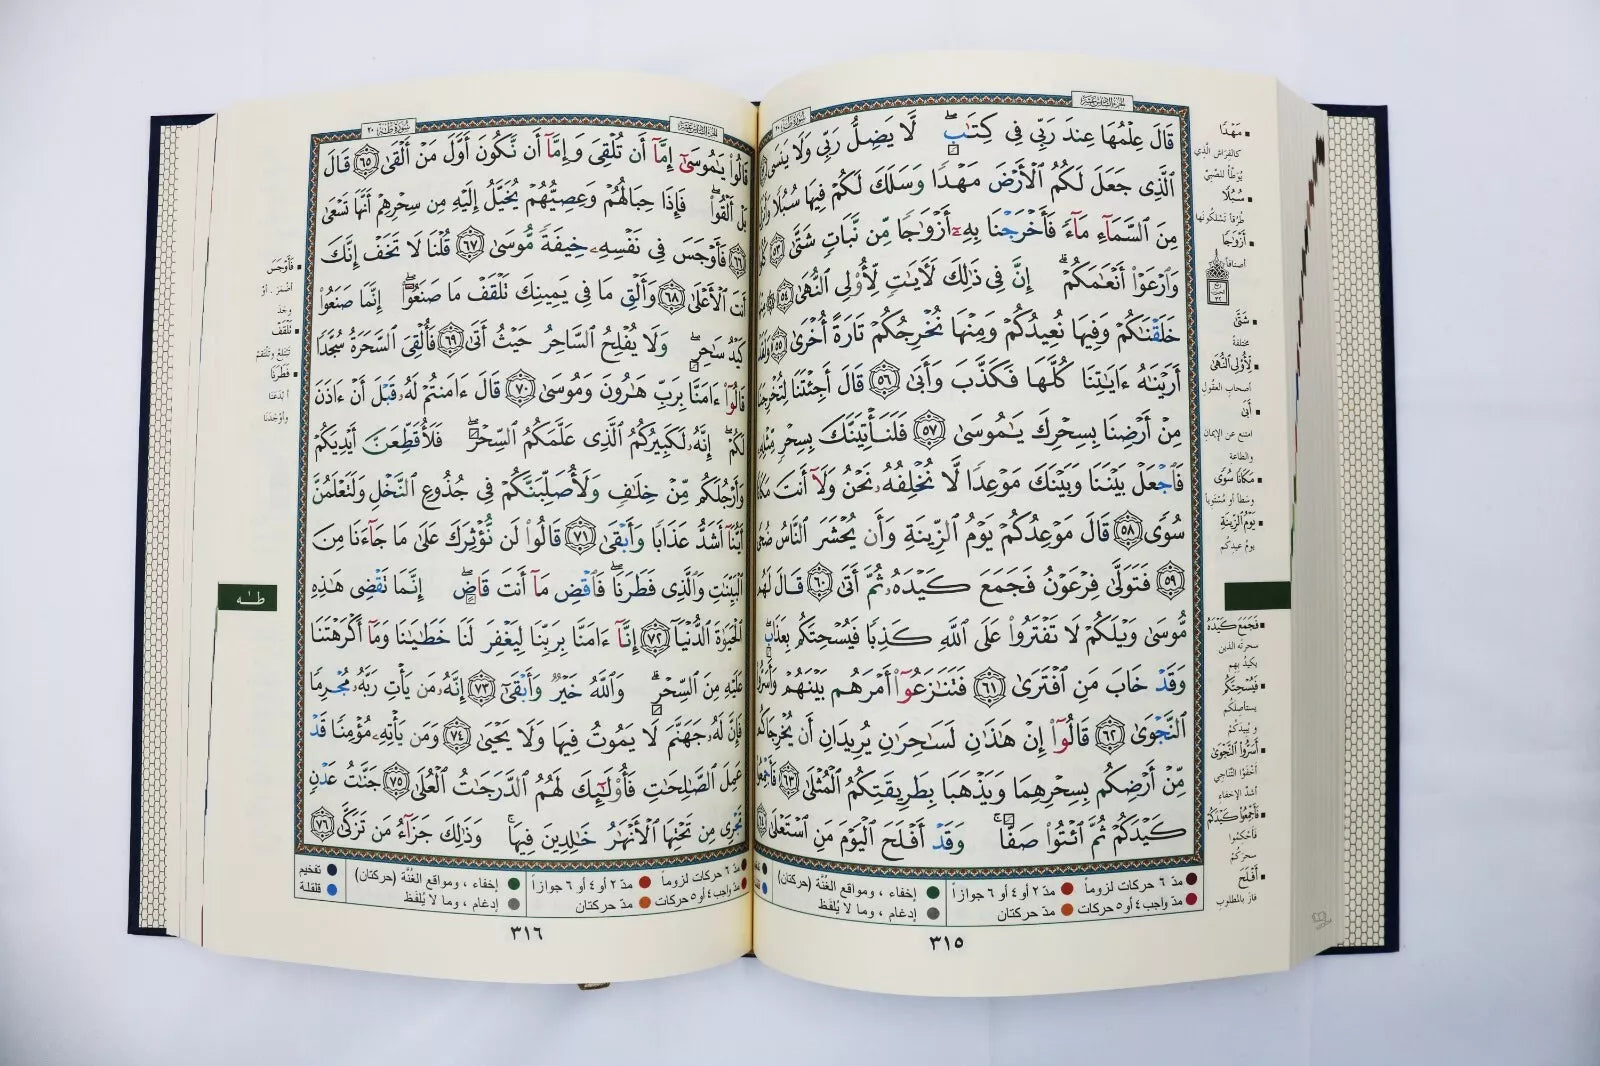 الجزء السادس عشر
سورة طه ٢٠
قَالَ عِلْمُهَا عِندَ رَبِّى فِى كِتَٰبٍۖ لَّا يَضِلُّ رَبِّى وَلَا يَنسَى
ٱلَّذِى جَعَلَ لَكُمُ ٱلْأَرْضَ مَهْدًا وَسَلَكَ لَكُمْ فِيهَا سُبُلًا وَأَنزَلَ
مِنَ ٱلسَّمَآءِ مَآءً فَأَخْرَجْنَا بِهِۦٓ أَزْوَٰجًا مِّن نَّبَاتٍ شَتَّىٰ ٥٣
وَٱرْعَوْا۟ أَنْعَٰمَكُمْۗ إِنَّ فِى ذَٰلِكَ لَءَايَٰتٍ لِّأُو۟لِى ٱلنُّهَىٰ ٥٤
خَلَقْنَٰكُمْ وَفِيهَا نُعِيدُكُمْ وَمِنْهَا نُخْرِجُكُمْ تَارَةً أُخْرَىٰ ٥٥
أَرَيْنَٰهُ ءَايَٰتِنَا كُلَّهَا فَكَذَّبَ وَأَبَىٰ ٥٦ قَالَ أَجِئْتَنَا لِتُخْرِجَنَا
مِنْ أَرْضِنَا بِسِحْرِكَ يَٰمُوسَىٰ ٥٧ فَلَنَأْتِيَنَّكَ بِسِحْرٍ مِّثْلِهِۦ
فَٱجْعَلْ بَيْنَنَا وَبَيْنَكَ مَوْعِدًا لَّا نُخْلِفُهُۥ نَحْنُ وَلَآ أَنتَ
سُوًى ٥٨ قَالَ مَوْعِدُكُمْ يَوْمُ ٱلزِّينَةِ وَأَن يُحْشَرَ ٱلنَّاسُ ضُحًى
٥٩ فَتَوَلَّىٰ فِرْعَوْنُ فَجَمَعَ كَيْدَهُۥ ثُمَّ أَتَىٰ ٦٠ قَالَ لَهُم
مُّوسَىٰ وَيْلَكُمْ لَا تَفْتَرُوا۟ عَلَى ٱللَّهِ كَذِبًا فَيُسْحِتَكُم بِعَذَابٍۖ
وَقَدْ خَابَ مَنِ ٱفْتَرَىٰ ٦١ فَتَنَٰزَعُوٓا۟ أَمْرَهُم بَيْنَهُمْ وَأَسَرُّوا۟
ٱلنَّجْوَىٰ ٦٢ قَالُوٓا۟ إِنْ هَٰذَٰنِ لَسَٰحِرَٰنِ يُرِيدَانِ أَن يُخْرِجَاكُم
مِّنْ أَرْضِكُم بِسِحْرِهِمَا وَيَذْهَبَا بِطَرِيقَتِكُمُ ٱلْمُثْلَىٰ ٦٣ فَأَجْمِعُوا۟
كَيْدَكُمْ ثُمَّ ٱئْتُوا۟ صَفًّاۚ وَقَدْ أَفْلَحَ ٱلْيَوْمَ مَنِ ٱسْتَعْلَىٰ ٦٤
مَهْدًا
كالفِراشِ الَّذي
يُوَطَّأُ للصَّبِيّ
سُبُلًا
طُرُقاً تَسْلُكُونَها
أَزْوَٰجًا
أصنافاً
شَتَّىٰ
مختلفة
لِّأُو۟لِى ٱلنُّهَىٰ
أصحاب العقول
أَبَىٰ
امتنع عن الإيمان
والطاعة
مَكَانًا سُوًى
وسَطاً أو مُسْتَوِياً
يَوْمُ ٱلزِّينَةِ
يومُ عيدِكُم
فَجَمَعَ كَيْدَهُۥ
سحرتَه الذين
يكيدُ بهم
فَيُسْحِتَكُم
يستأصِلَكُم
و يُبيدَكُمْ
أَسَرُّوا۟ ٱلنَّجْوَىٰ
أخْفَوُا التَّناجي
أشدَّ الإخفاءِ
فَأَجْمِعُوا۟ كَيْدَكُمْ
فأحْكِمُوا
سحرَكُم
أَفْلَحَ
فازَ بالمطلوب
مدّ ٦ حركات لزوماً
مدّ ٢ أو ٤ أو ٦ جوازاً
إخفاء ، ومواقع الغُنَّة (حركتان)
مدّ واجب ٤ أو ٥ حركات
مدّ حركتان
إدغام ، وما لا يُلفَظ
٣١٥
الجزء السادس عشر
سورة طه ٢٠
قَالُوا۟ يَٰمُوسَىٰٓ إِمَّآ أَن تُلْقِىَ وَإِمَّآ أَن نَّكُونَ أَوَّلَ مَنْ أَلْقَىٰ ٦٥ قَالَ
بَلْ أَلْقُوا۟ۖ فَإِذَا حِبَالُهُمْ وَعِصِيُّهُمْ يُخَيَّلُ إِلَيْهِ مِن سِحْرِهِمْ أَنَّهَا تَسْعَىٰ
٦٦ فَأَوْجَسَ فِى نَفْسِهِۦ خِيفَةً مُّوسَىٰ ٦٧ قُلْنَا لَا تَخَفْ إِنَّكَ
أَنتَ ٱلْأَعْلَىٰ ٦٨ وَأَلْقِ مَا فِى يَمِينِكَ تَلْقَفْ مَا صَنَعُوٓا۟ۖ إِنَّمَا صَنَعُوا۟
كَيْدُ سَٰحِرٍۖ وَلَا يُفْلِحُ ٱلسَّاحِرُ حَيْثُ أَتَىٰ ٦٩ فَأُلْقِىَ ٱلسَّحَرَةُ سُجَّدًا
قَالُوٓا۟ ءَامَنَّا بِرَبِّ هَٰرُونَ وَمُوسَىٰ ٧٠ قَالَ ءَامَنتُمْ لَهُۥ قَبْلَ أَنْ ءَاذَنَ
لَكُمْۖ إِنَّهُۥ لَكَبِيرُكُمُ ٱلَّذِى عَلَّمَكُمُ ٱلسِّحْرَۖ فَلَأُقَطِّعَنَّ أَيْدِيَكُمْ
وَأَرْجُلَكُم مِّنْ خِلَٰفٍ وَلَأُصَلِّبَنَّكُمْ فِى جُذُوعِ ٱلنَّخْلِ وَلَتَعْلَمُنَّ
أَيُّنَآ أَشَدُّ عَذَابًا وَأَبْقَىٰ ٧١ قَالُوا۟ لَن نُّؤْثِرَكَ عَلَىٰ مَا جَآءَنَا مِنَ
ٱلْبَيِّنَٰتِ وَٱلَّذِى فَطَرَنَاۖ فَٱقْضِ مَآ أَنتَ قَاضٍۖ إِنَّمَا تَقْضِى هَٰذِهِ
ٱلْحَيَوٰةَ ٱلدُّنْيَآ ٧٢ إِنَّآ ءَامَنَّا بِرَبِّنَا لِيَغْفِرَ لَنَا خَطَٰيَٰنَا وَمَآ أَكْرَهْتَنَا
عَلَيْهِ مِنَ ٱلسِّحْرِۗ وَٱللَّهُ خَيْرٌ وَأَبْقَىٰٓ ٧٣ إِنَّهُۥ مَن يَأْتِ رَبَّهُۥ مُجْرِمًا
فَإِنَّ لَهُۥ جَهَنَّمَ لَا يَمُوتُ فِيهَا وَلَا يَحْيَىٰ ٧٤ وَمَن يَأْتِهِۦ مُؤْمِنًا قَدْ
عَمِلَ ٱلصَّٰلِحَٰتِ فَأُو۟لَٰٓئِكَ لَهُمُ ٱلدَّرَجَٰتُ ٱلْعُلَىٰ ٧٥ جَنَّٰتُ عَدْنٍ
تَجْرِى مِن تَحْتِهَا ٱلْأَنْهَٰرُ خَٰلِدِينَ فِيهَاۚ وَذَٰلِكَ جَزَآءُ مَن تَزَكَّىٰ ٧٦
فَأَوْجَسَ
أضْمَرَ . أوْ
وجَدَ
تَلْقَفْ
تَبْتَلِعْ وتَلْتَقِمْ
فَطَرَنَا
أبْدَعَنَا
وأوْجَدَنَا
طه
مدّ ٦ حركات لزوماً
مدّ ٢ أو ٤ أو ٦ جوازاً
إخفاء ، ومواقع الغُنَّة (حركتان)
تفخيم
مدّ واجب ٤ أو ٥ حركات
مدّ حركتان
إدغام ، وما لا يُلفَظ
قلقلة
٣١٦